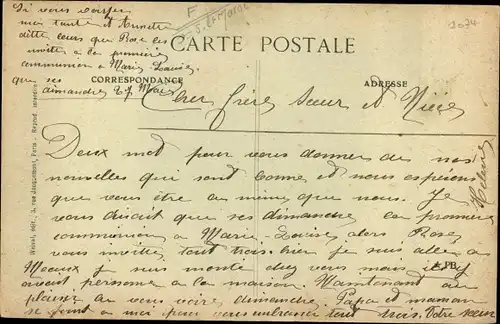 Si vous voyez
ma tante et Annette
dites leurs que Rose les
invites a la première
communion a Marie Louise
que ses
dimanche 27 Mai
CARTE POSTALE
CORRESPONDANCE
ADRESSE
Cher frère Sœur et Nièce
Deux mot pour vous donner de nos
nouvelles qui sont bonne et nous espérons
que vous être au même que nous. Je
vous dirait que ses dimanche la première
communion a Marie Louise alors Rose
vous invites tout trois. hier je suis allée a
Meaux je suis monté chez vous mais il y
avait personne a la maison. Maintenant au
plaisir de vous voire dimanche. Papa et maman
se joint a moi pour vous embrasser tout trois. Votre sœur
Hélène